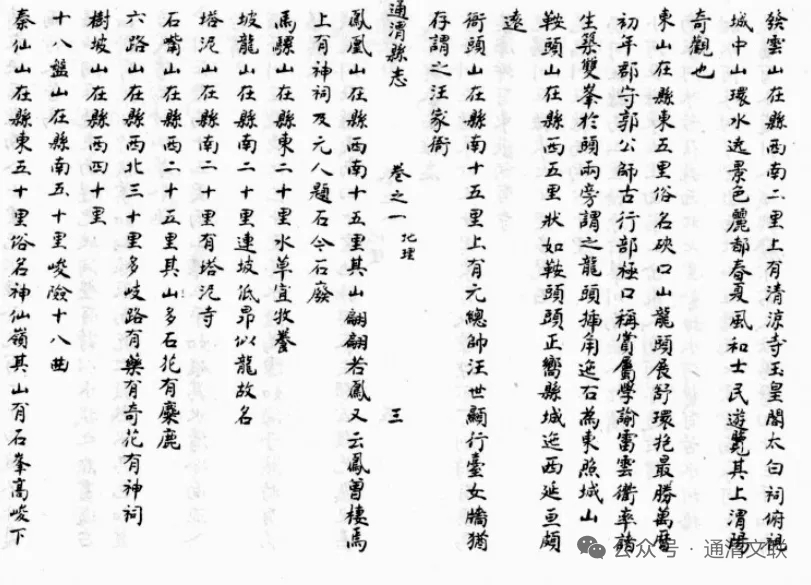 發雲山在縣西南二里上有清涼寺玉皇閣太白祠俯視
城中山環水遶景色麗都春夏風和士民遊覽其上渭陽
奇觀也
東山在縣東五里俗名砍口山龍頭展舒環抱最勝萬曆
初年郡守郭公師古行部極口稱賞屬學諭雷雲衢率諸
生築雙峯於頭兩旁謂之龍頭揷角迤石為東照城山
鞍頭山在縣西五里狀如鞍頭頭正嚮縣城迤西延亘頗
遠
衙頭山在縣南十五里上有元總帥汪世顯行臺女牆猶
存謂之汪家衙
通渭縣志 卷之一 地理 三
鳳凰山在縣西南十五里其山翩翩若鳳又云鳳曾棲焉
上有神祠及元人題石今石廢
馬騾山在縣東二十里水草宜牧養
坡龍山在縣南二十里連坡低昂似龍故名
塔泥山在縣南二十里有塔泥寺
石嘴山在縣西二十五里其山多石花有麋鹿
六路山在縣西北三十里多岐路有藥有奇花有神祠
樹坡山在縣西四十里
十八盤山在縣南五十里峻險十八曲
秦仙山在縣東五十里俗名神仙嶺其山有石峯高峻下
公众号·通渭文联